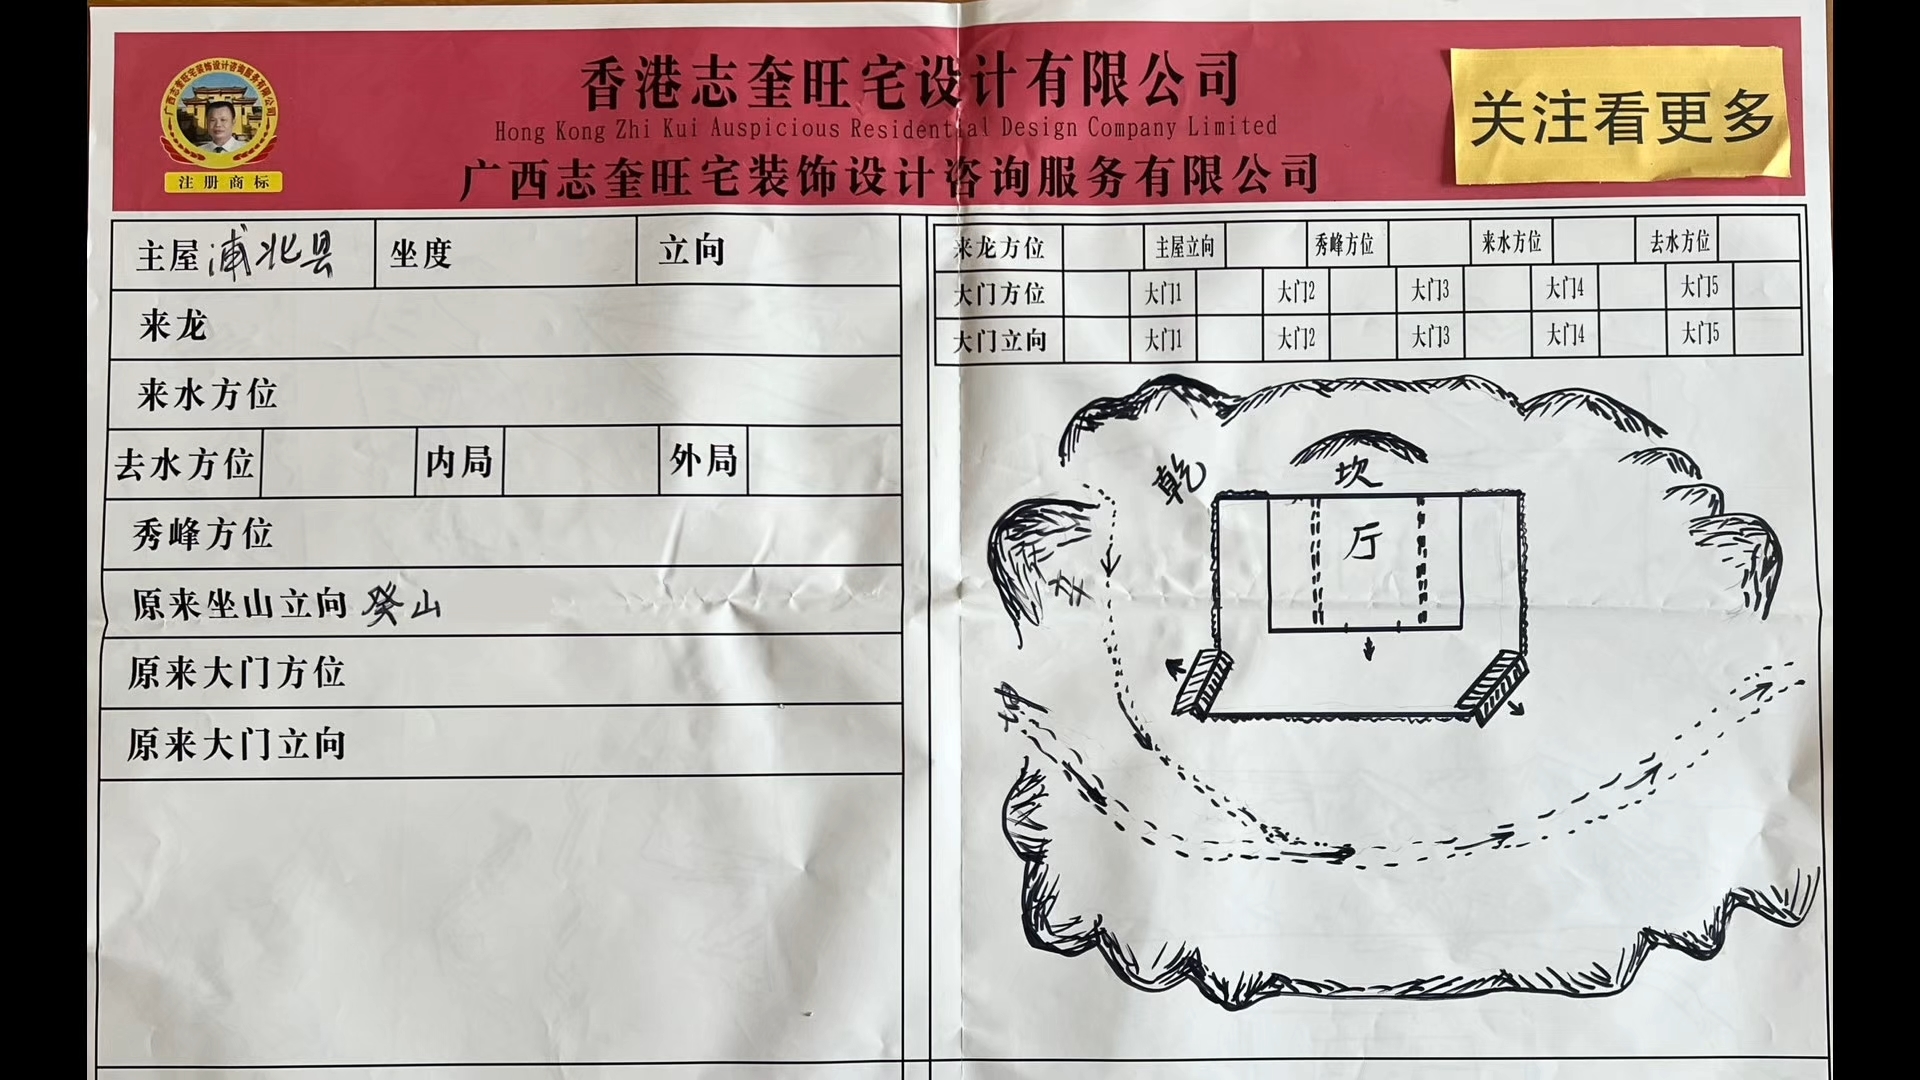 广西志奎旺宅装饰设计咨询服务有限公司
注册商标
香港志奎旺宅设计有限公司
Hong Kong Zhi Kui Auspicious Residential Design Company Limited
广西志奎旺宅装饰设计咨询服务有限公司
关注看更多
主屋 浦北县 坐度 立向
来龙
来水方位
去水方位 内局 外局
秀峰方位
原来坐山立向 癸山
原来大门方位
原来大门立向
来龙方位 主屋立向 秀峰方位 来水方位 去水方位
大门方位 大门1 大门2 大门3 大门4 大门5
大门立向 大门1 大门2 大门3 大门4 大门5
乾 坎
厅